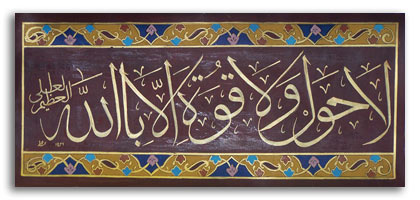 لا حول ولا قوة إلا بالله
العلي العظيم